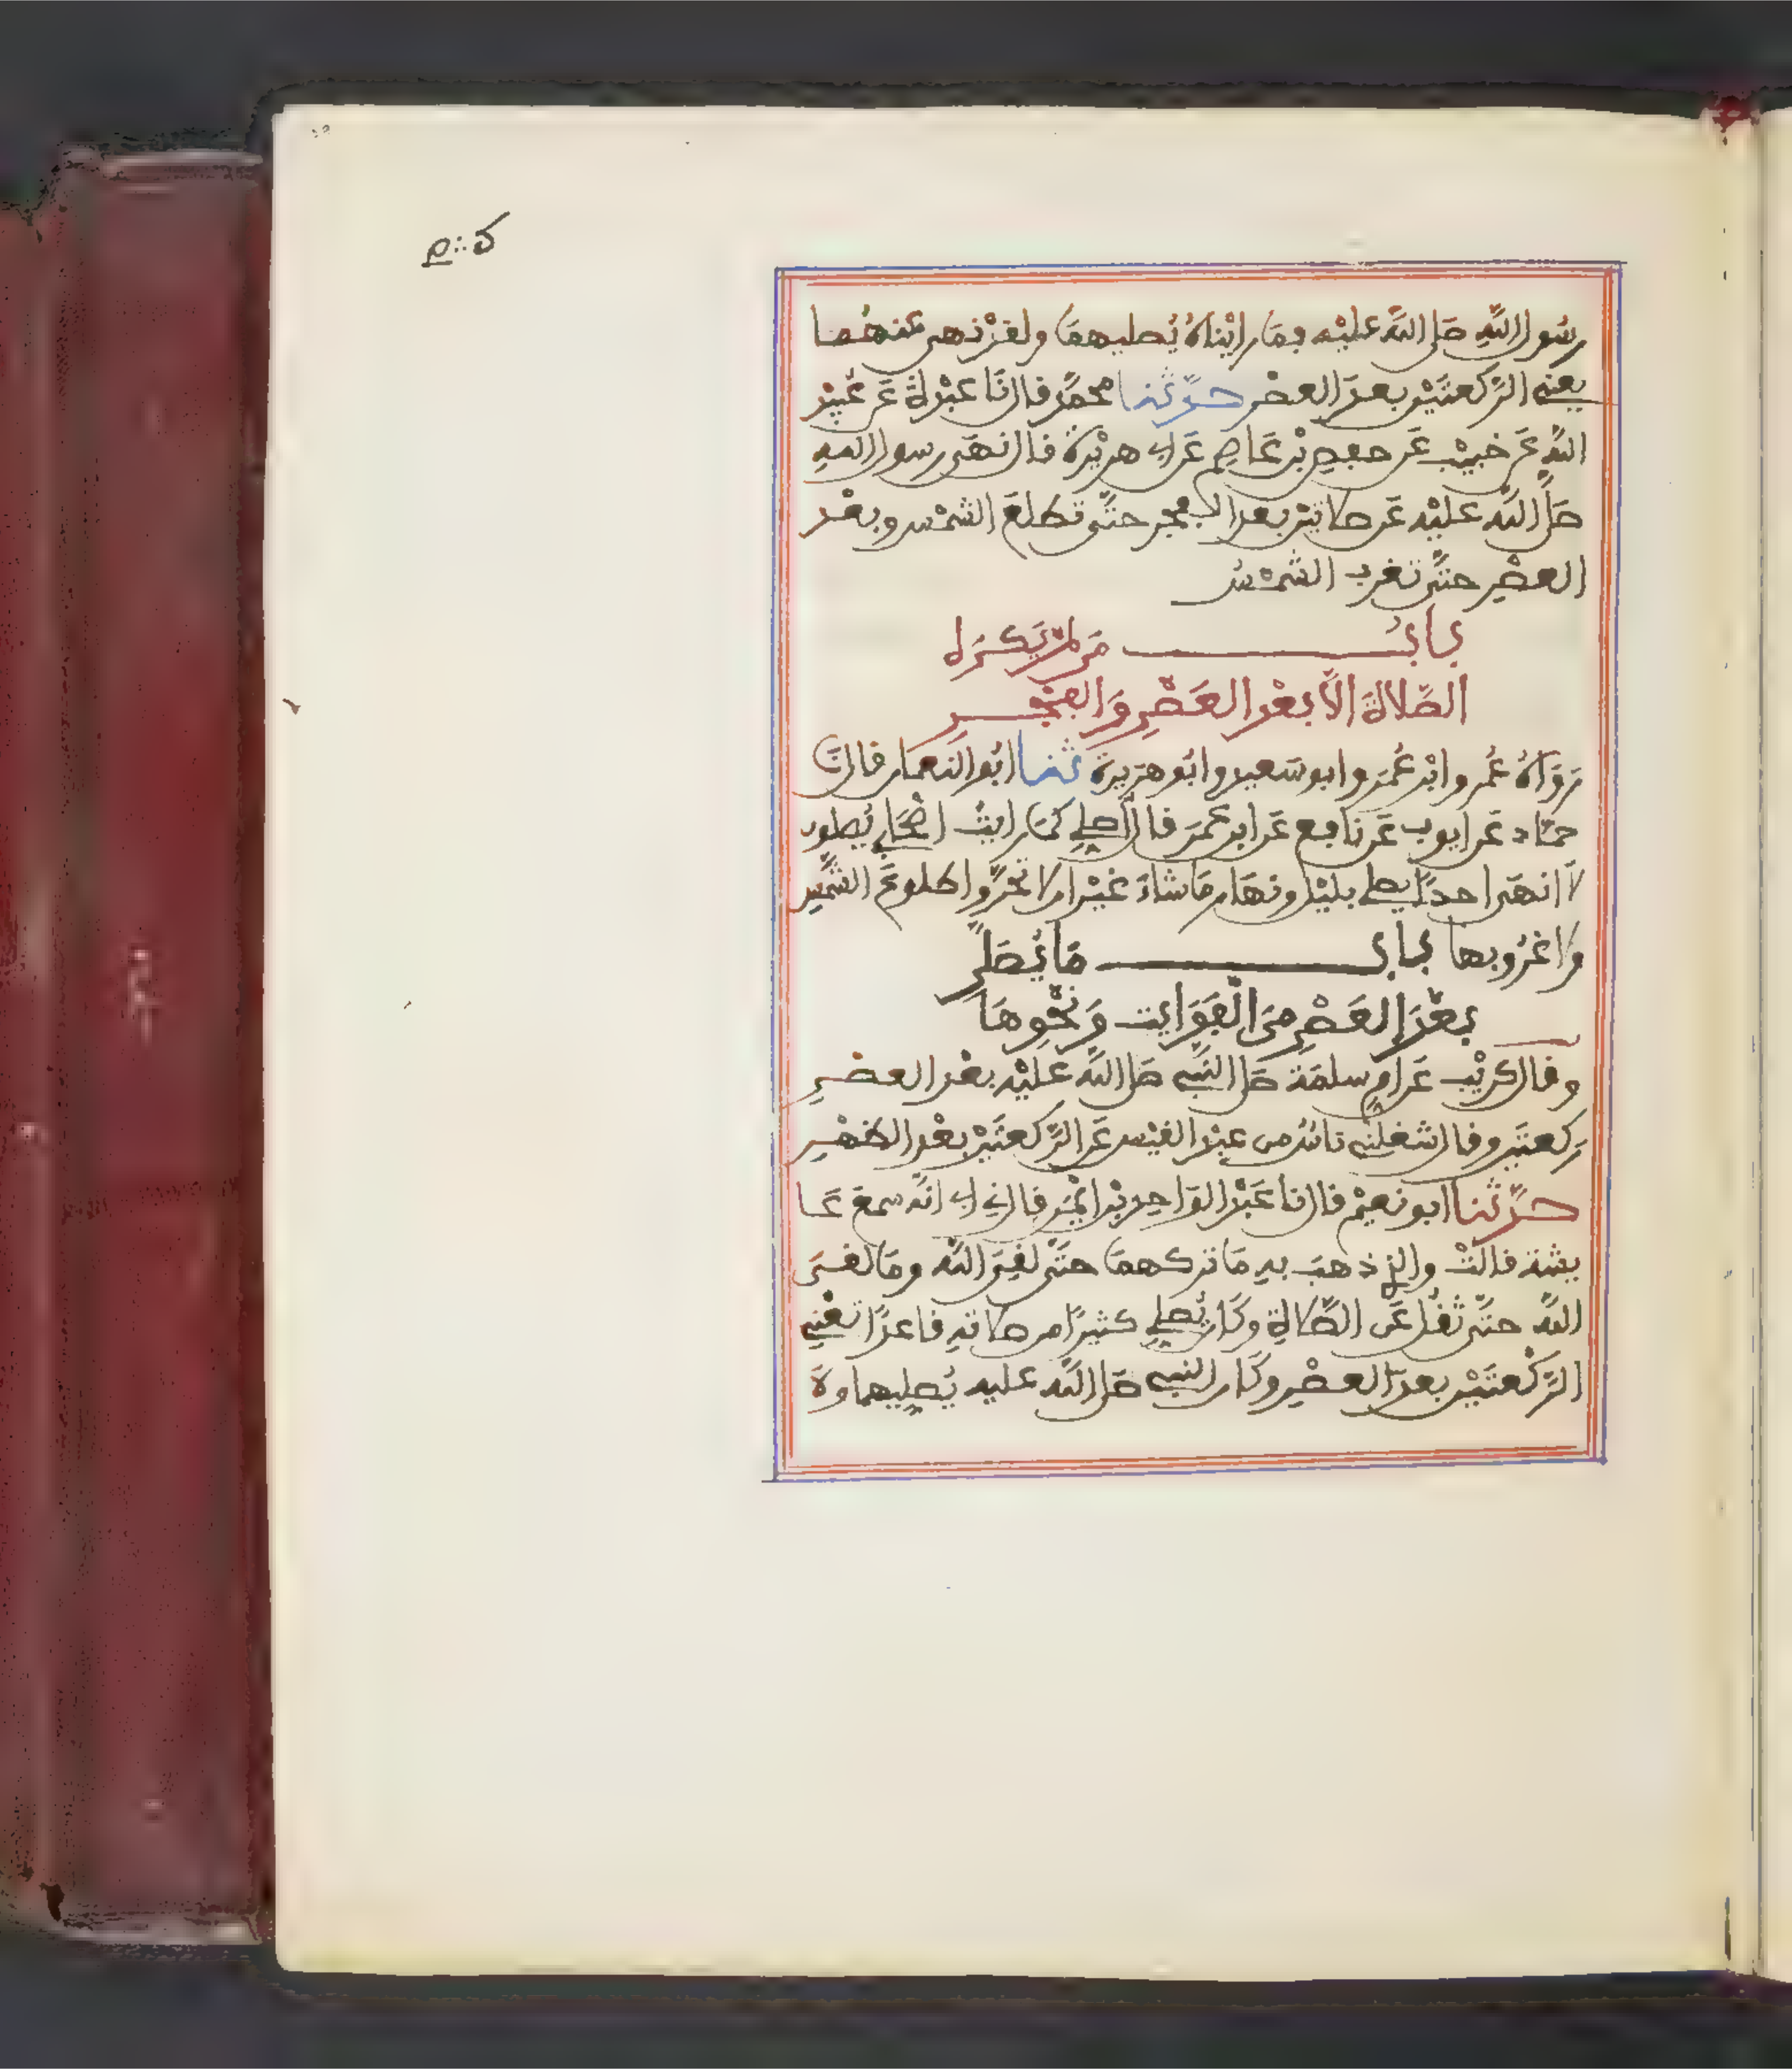 رسول الله صلى الله عليه فما رأيناه يُصليهما ولقد نهى عنهما
يعني الرَّكعتَيْن بعدَ العصر حدَّثنا محمدٌ قال نَا عبْدة عَن عُبَيْد
الله عَن خبيْب عَن حفص بْن عَاصم عَن ابي هريْرة قال نهَى رسول الله
صَلى الله عليْه عَن صلاتيْن بعد الفجر حتَّى تطلعَ الشمْس وبعْد
العصْر حتَّى تغرب الشمْسُ
بابُ مَن لمْ يَكْرَه
الصَّلاةَ الَّا بعْد العَصْرِ وَالفجْرِ
رَوَاهُ عُمر وابْن عُمَر وابو سَعيد وابُو هرَيرة ثنا ابُو النعمان قال نَا
حمَّاد عَن ايوب عَن نافع عَن ابن عمَر قال اُصلي كمَا رايتُ اصْحَابي يُصلون
لا انهَى احدًا يصلي بليْل ونهَار مَا شاءَ غيْر ان لا تحرَّوا طلوعَ الشمْس
ولا غرُوبها باب مَا يُصَلَّى
بعْدَ العَصْرِ مِنَ الْفَوَايت وَنحْوِهَا
وقال كريْب عَن ام سلمَة صَلى النَّبي صَلى الله عليْه بعْد العصْرِ
رَكعتَين وقال شغلني ناسٌ من عبْد القيْس عَن الرَّكعتَيْن بعْد الظهْرِ
حدَّثنا ابو نعيْم قال نا عبْد الوَاحِد بْن ايْمَن قال ني ابي انَّه سمعَ عَا
يشة قالتْ والذي ذهبَ به مَا تركهمَا حتَّى لقيَ الله ومَا لقيَ
الله حتَّى ثقُل عَن الصَّلاة وكَان يُصلي كثيرًا من صلاته قاعدًا تعْني
الرَّكْعتَيْن بعدَ العصْرِ وكَان النبي صَلى الله عليه يُصليهما وَلَا